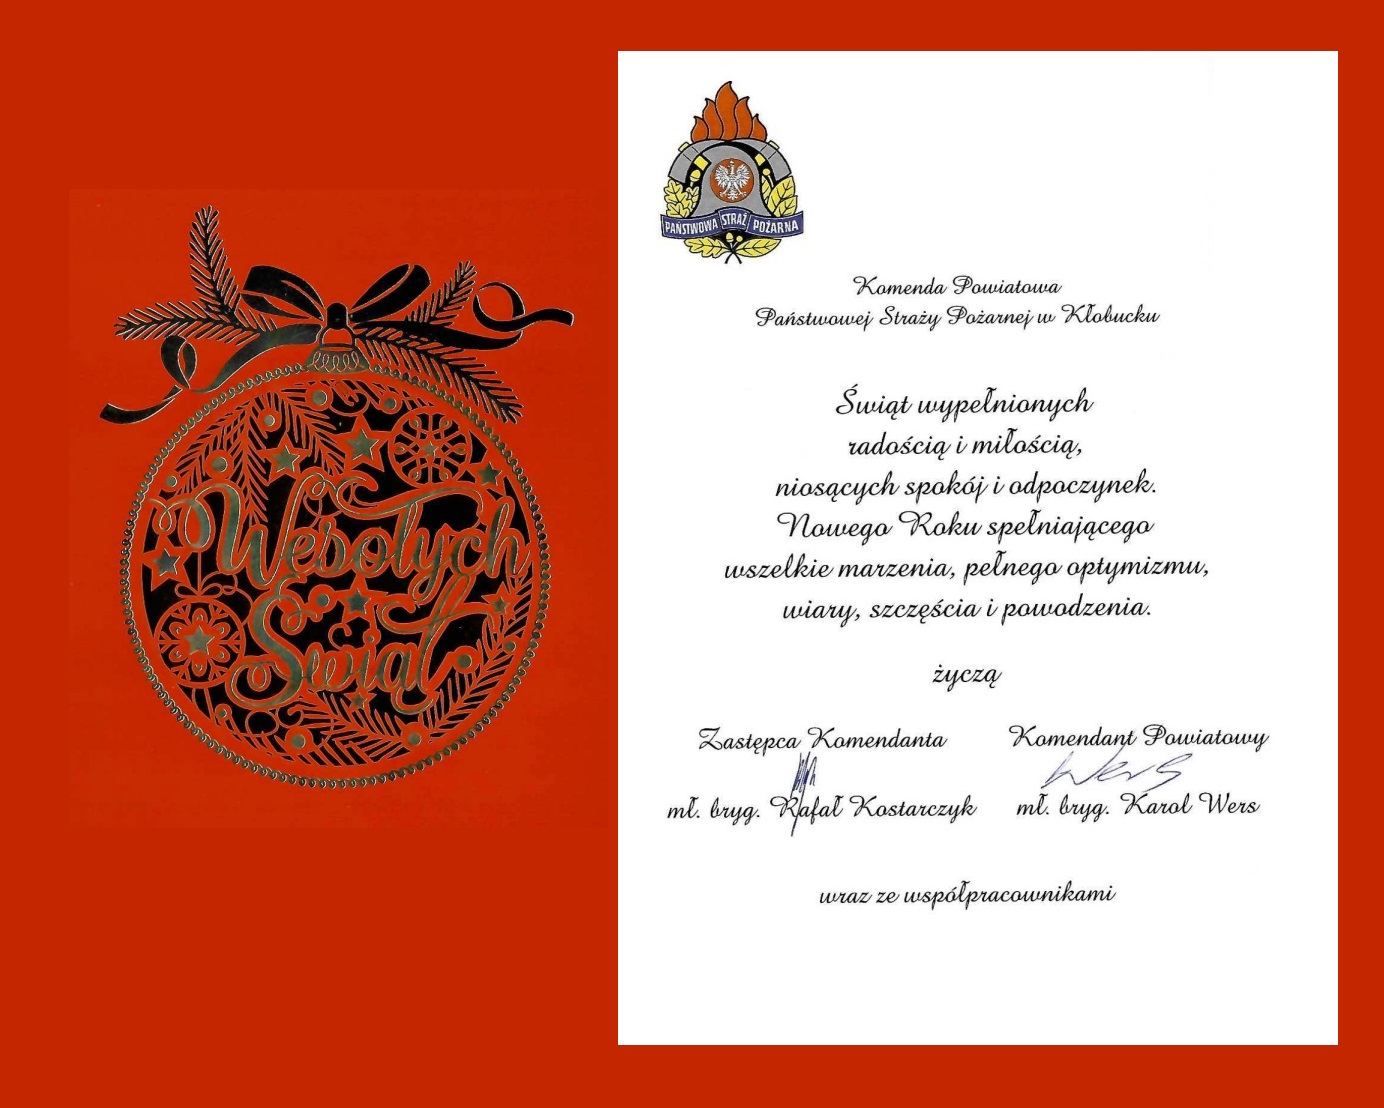 Wesołych
Świąt
PAŃSTWOWA STRAŻ POŻARNA
Komenda Powiatowa
Państwowej Straży Pożarnej w Kłobucku
Świąt wypełnionych
radością i miłością,
niosących spokój i odpoczynek.
Nowego Roku spełniającego
wszelkie marzenia, pełnego optymizmu,
wiary, szczęścia i powodzenia.
życzą
Zastępca Komendanta
mł. bryg. Rafał Kostarczyk
Komendant Powiatowy
Wers
mł. bryg. Karol Wers
wraz ze współpracownikami